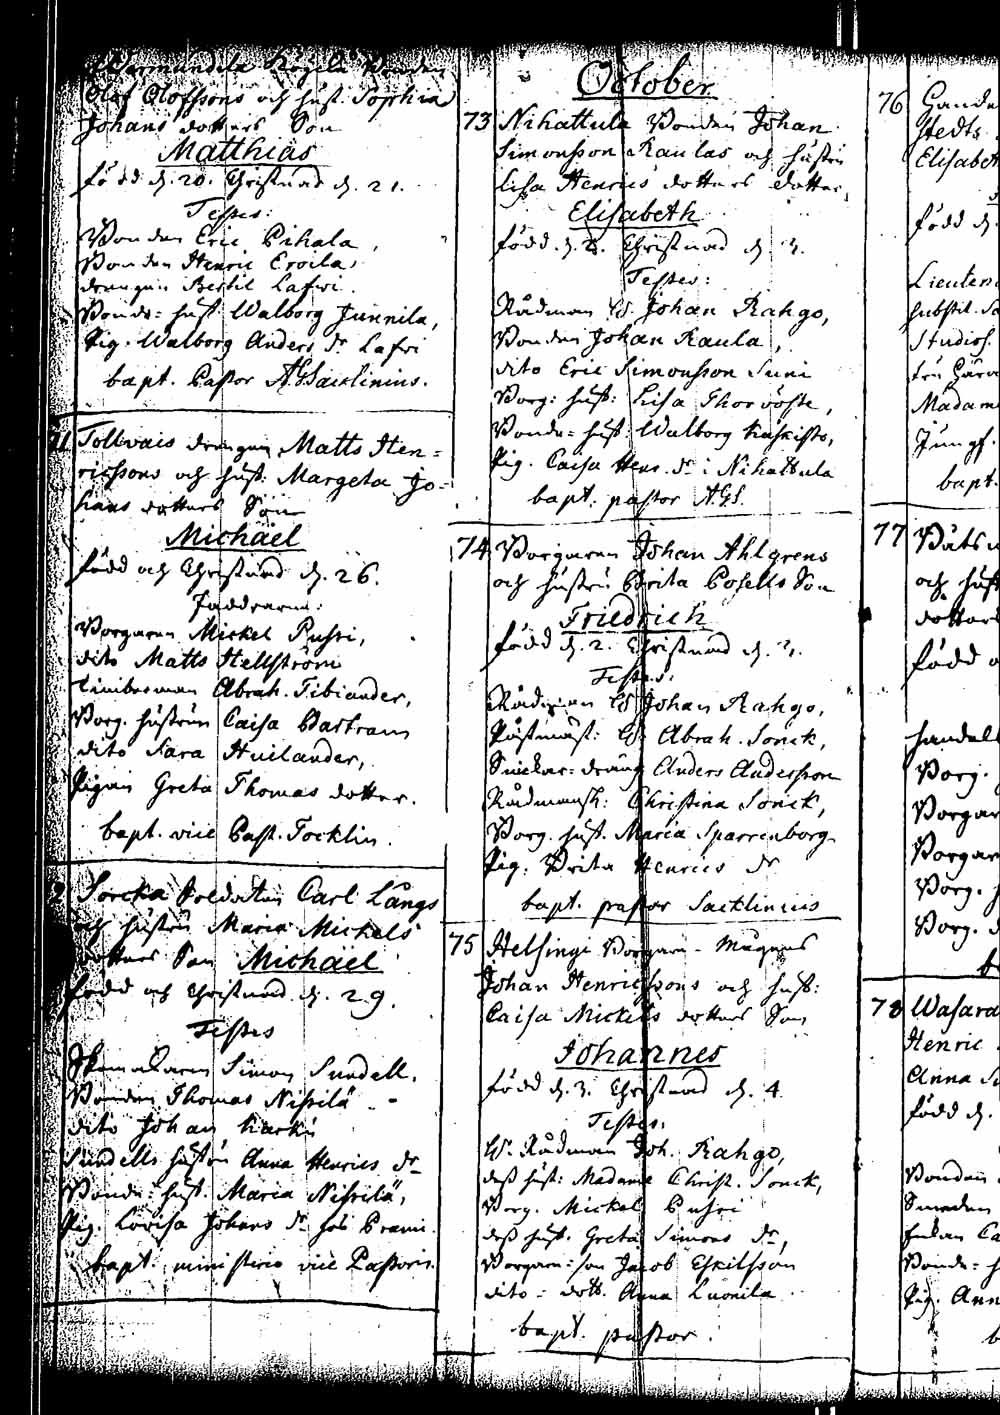 Olof Olofssons och hust. Sophia
Johans dotters Son
Matthias
född d. 20. Christnad d. 21.
Testes:
Bonden Eric Pihala,
Bonden Henric Eroila,
drengen Bertil Lafri.
Bonde=hust Walborg Junnila,
Pig. Walborg Anders dr Lafri
bapt. Pastor AGSacklinius.
71 Tollvais drengen Matts Hen=
ricssons och hust. Margeta Jo=
hans dotters Son
Michaël
född och Christnad d. 26.
Faddrarne:
Borgaren Mickel Puhri,
dito Matts Hellström
Timberman Abrah. Tibiander,
Borg. hustrun Caisa Bartram
dito Sara Huilander,
Pigan Greta Thomas dotter.
bapt. vice Past. Tocklin.
Sorcka Soldaten Carl Långs
och hustru Maria Mickels
dotters Son Michaël
född och Christnad d. 29.
Testes
Simon Sundell.
Bonden Thomas Nissilä
dito Johan Karki
Sundells hustru Anna Henrics dr
Bonde=hust. Maria Nissilä,
Pig. Lovisa Johans dr
bapt. ministerio vice Pastoris.
October
73 Nihattula Bonden Johan
Simonsson Raulas och hustru
Lisa Henrics dotters dotter,
Elisabeth
född d. 2. Christnad d. 3.
Testes:
Rådman H. Johan Rahgo,
Bonden Johan Raula,
dito Eric Simonsson Suni
Borg: hust: Lisa Thorvöste,
Bonde=hust: Walborg Kaskisto,
Pig. Caisa Henr. dr i Nihattula
bapt. pastor AGS.
74 Borgaren Johan Ahlgrens
och hustru Brita Posells Son
Friedrich
född d. 2. Christnad d. 3.
Testes:
Rådman H. Johan Rahgo,
Postmäst: H. Abrah. Sonck,
Snickar=dräng Anders Andersson
Rådmansk: Christina Sonck,
Borg. hust. Maria Sparrenborg
Pig. Brita Henrics dr
bapt. pastor Sacklinius
75 Helsinge Borgaren Magnus
Johan Henricssons och hust:
Caisa Mickels dotters Son
Johannes
född d. 3. Christnad d. 4
Testes:
H. Rådman Joh. Rahgo,
dess hust: Madame Christ. Sonck,
Borg. Mickel Puhri
dess hust. Greta Simons dr,
Borgare=son Jacob Eskilsson
dito=dott. Anna Luonila
bapt. pastor.
76 Gande
stedts
Elisabet
född d.
Lieuten
substit.
Studios.
Madam
Jungf.
bapt.
77 Båts
och hust
dotters
född o
handell
Borg.
Borgar
Borgar
Borg. h
Borg. d
b
78 Wasara
Henric
Anna
född d.
Bonden
Bonde=h
Pig. Ann
b